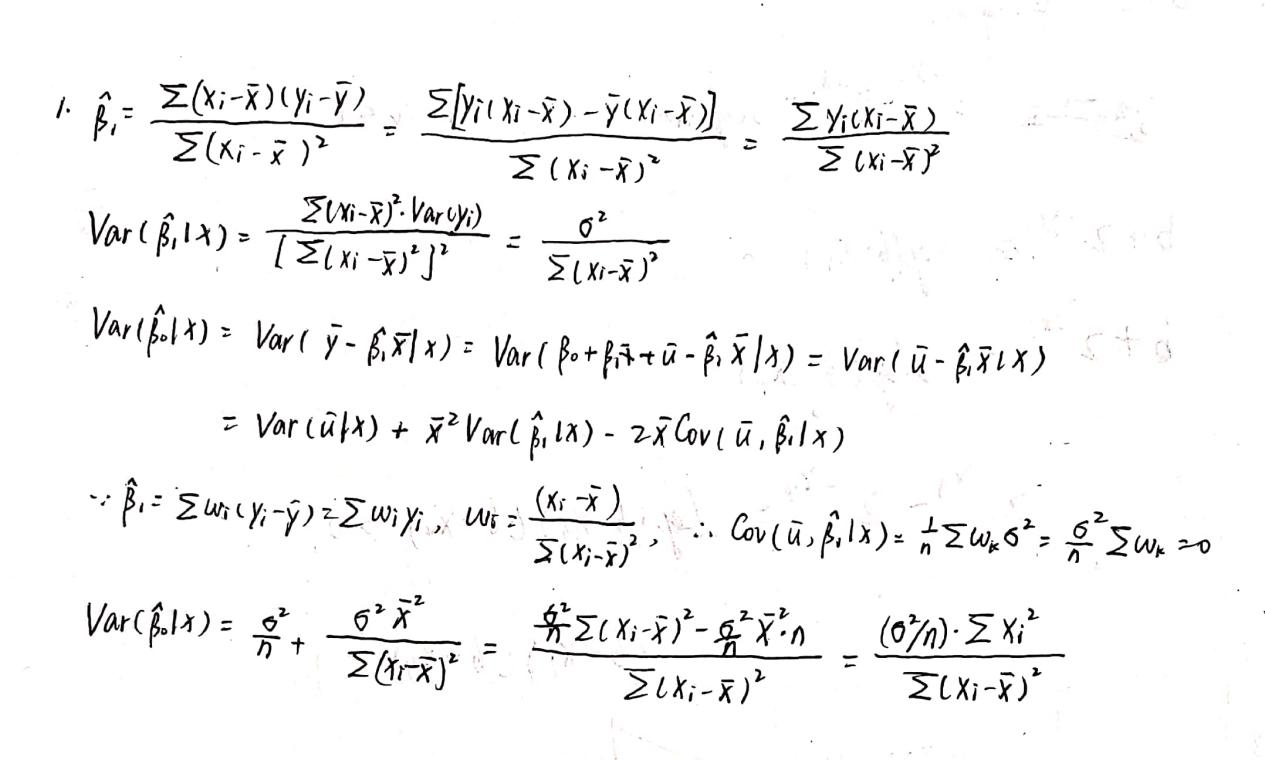 1. β̂₁ = Σ(xᵢ-x̄)(yᵢ-ȳ) / Σ(xᵢ-x̄)² = Σ[yᵢ(xᵢ-x̄) - ȳ(xᵢ-x̄)] / Σ(xᵢ-x̄)² = Σyᵢ(xᵢ-x̄) / Σ(xᵢ-x̄)²
Var(β̂₁|x) = Σ(xᵢ-x̄)²·Var(yᵢ) / [Σ(xᵢ-x̄)²]² = σ² / Σ(xᵢ-x̄)²
Var(β̂₀|x) = Var(ȳ-β̂₁x̄|x) = Var(β₀+β₁x̄+ū-β̂₁x̄|x) = Var(ū-β̂₁x̄|x)
= Var(ū|x) + x̄²Var(β̂₁|x) - 2x̄Cov(ū, β̂₁|x)
∵ β̂₁ = Σwᵢ(yᵢ-ȳ) = Σwᵢyᵢ, wᵢ = (xᵢ-x̄) / Σ(xᵢ-x̄)², ∴ Cov(ū, β̂₁|x) = 1/n Σwₖσ² = σ²/n Σwₖ = 0
Var(β̂₀|x) = σ²/n + σ²x̄² / Σ(xᵢ-x̄)² = (σ²/n Σ(xᵢ-x̄)² - σ²/n x̄²·n) / Σ(xᵢ-x̄)² = (σ²/n)·Σxᵢ² / Σ(xᵢ-x̄)²